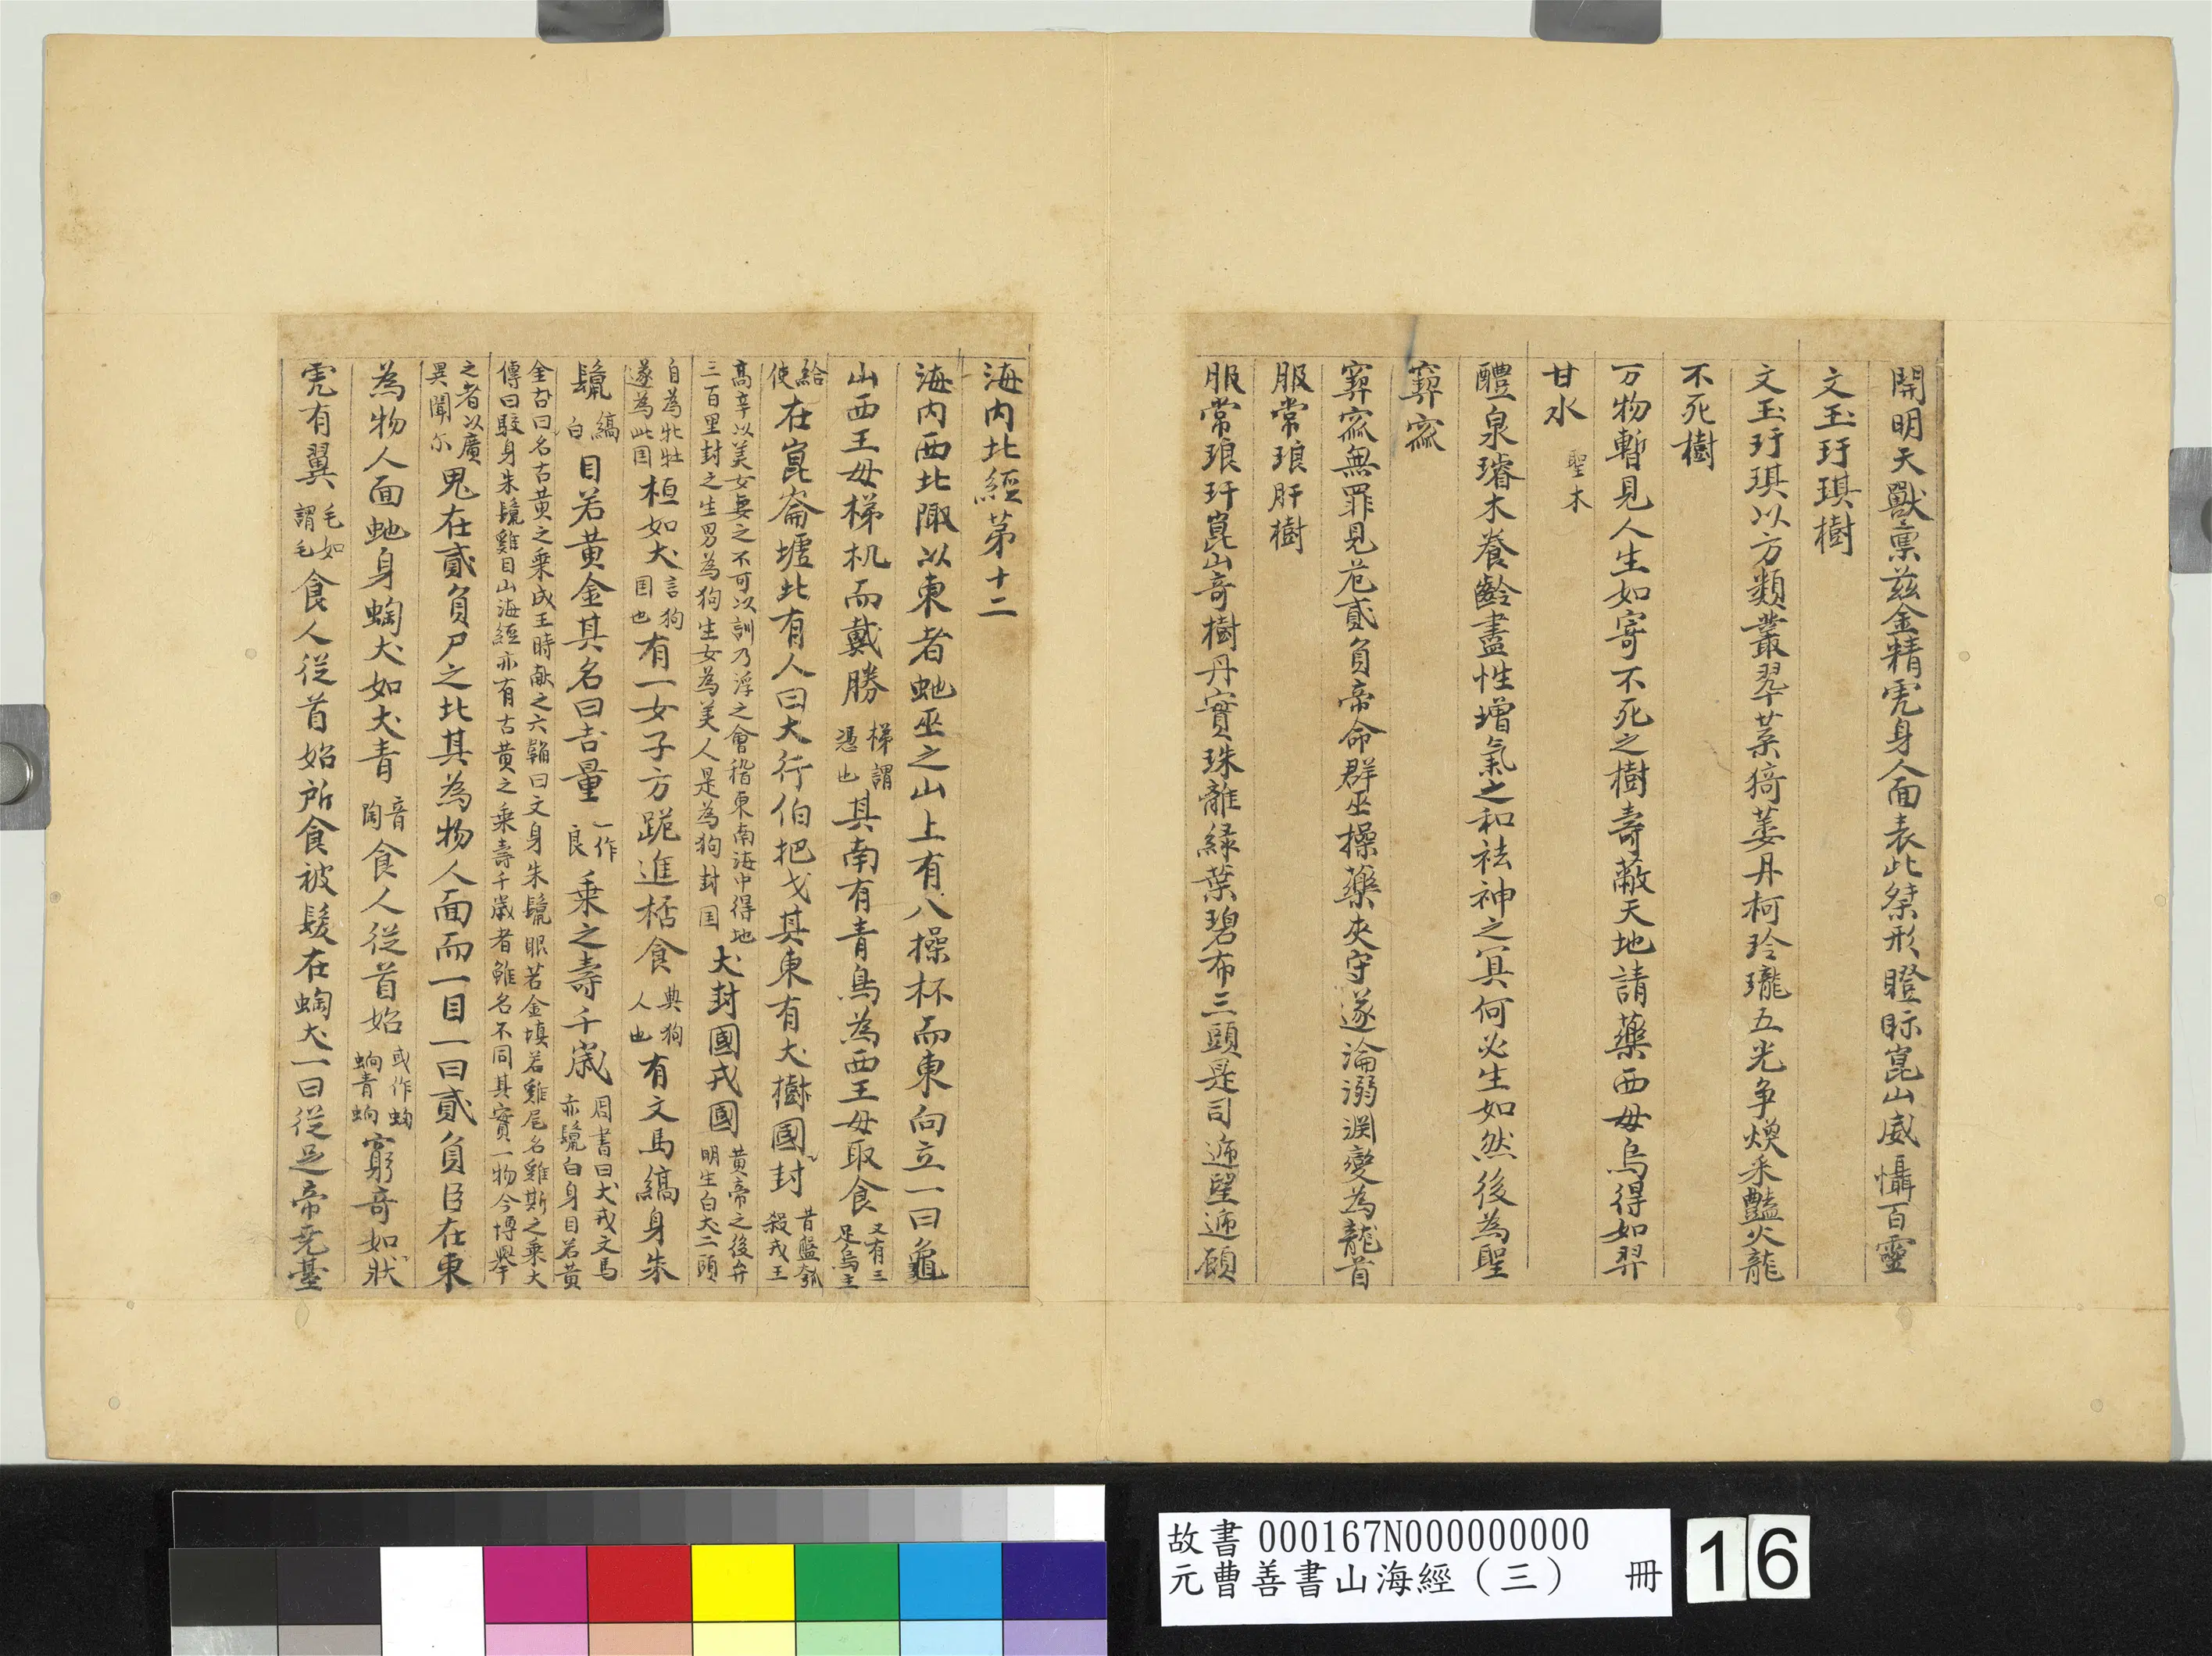 開明天獸稟茲金精虎身人面表此桀形瞪眎崑山威懾百靈
文玉玗琪樹
文玉玗琪以方類叢翠葉猗萎丹柯玲瓏五光爭煥采豔火龍
不死樹
万物暫見人生如寄不死之樹壽蔽天地請藥西母烏得如羿
甘水聖木
醴泉璿木養齡盡性增氣之和祛神之冥何必生如然後為聖
窫窳
窫窳無罪見危貳負帝命群巫操藥夾守遂淪溺渕變為龍首
服常琅肝樹
服常琅玕崑山奇樹丹實珠離緑葉碧布三頭是司递望递顧
海内北經第十二
海内西北陬以東者虵巫之山上有八操杯而東向立一曰龜
山西王母梯机而戴勝梯謂憑也其南有青鳥為西王母取食又有三足烏主
給使在崑崙墟北有人曰大行伯把戈其東有犬樹國封昔盤瓠殺戎王
高辛以美女妻之不可以訓乃浮之會稽東南海中得地三百里封之生男為狗生女為美人是為狗封国犬封國戎國黄帝之後弁明生白犬二頭
自為牝牡遂為此国桓如犬言狗国也有一女子方跪進栝食典狗人也有文馬縞身朱
鬣縞白目若黄金其名曰吉量一作良乘之壽千歲周書曰犬戎文馬赤鬣白身目若黄
金名曰名古黄之乗成王時献之六韜曰文身朱鬣眼若金塡若雞尾名雞斯之乗大傳曰駮身朱鬣雞目山海經亦有古黄之乗壽千歲者雖名不同其實一物今博舉
之者以廣異聞尓鬼在貳負尸之北其為物人面而一目一曰貳負臣在東
為物人面虵身蜪犬如犬青音陶食人從首始或作蚼蚼青蚼窮奇如狀
虎有翼毛如謂毛食人從首始所食被髮在蜪犬一曰從足帝尭臺
故書 000167N000000000
元曹善書山海經（三） 冊
16